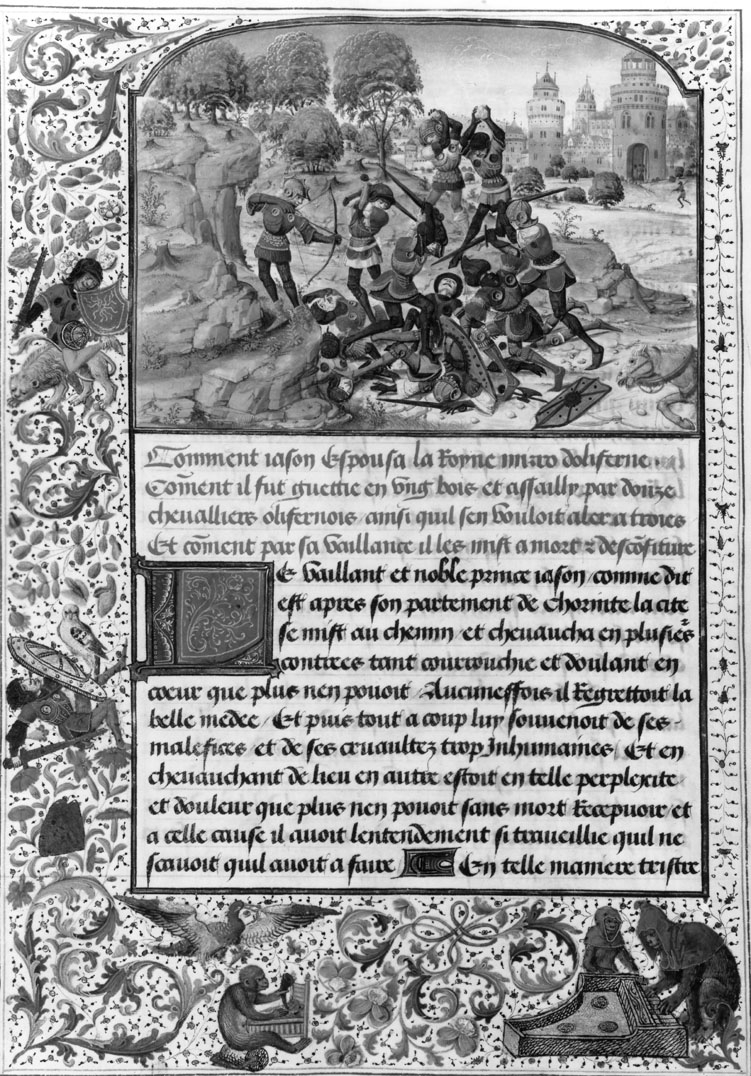 Comment iason Espousa la Royne mirro doliferne.
Coment il fut guettie en vng bois et assailly par douze
cheualliers olifernois / ainsi quil sen vouloit aler a troies
Et coment par sa vaillance il les mist a mort & desconfiture
Le vaillant et noble prince iason / comme dit
est apres son partement de chorinte la cite
se mist au chemin / et cheuaucha en plusieˀs
contrees tant courrouchie et doulant en
coeur que plus nen pouoit / Aucuneffois il Regrettoit la
belle medee / Et puis tout a coup luy souuenoit de ses
malefices et de ses cruaultez trop Inhumaines / Et en
cheuauchant de lieu en autre estoit en telle perplexite
et douleur que plus nen pouoit sans mort Recepuoir / et
a celle cause il auoit lentendement si traueillie quil ne
scauoit quil auoit a faire En telle maniere tristre